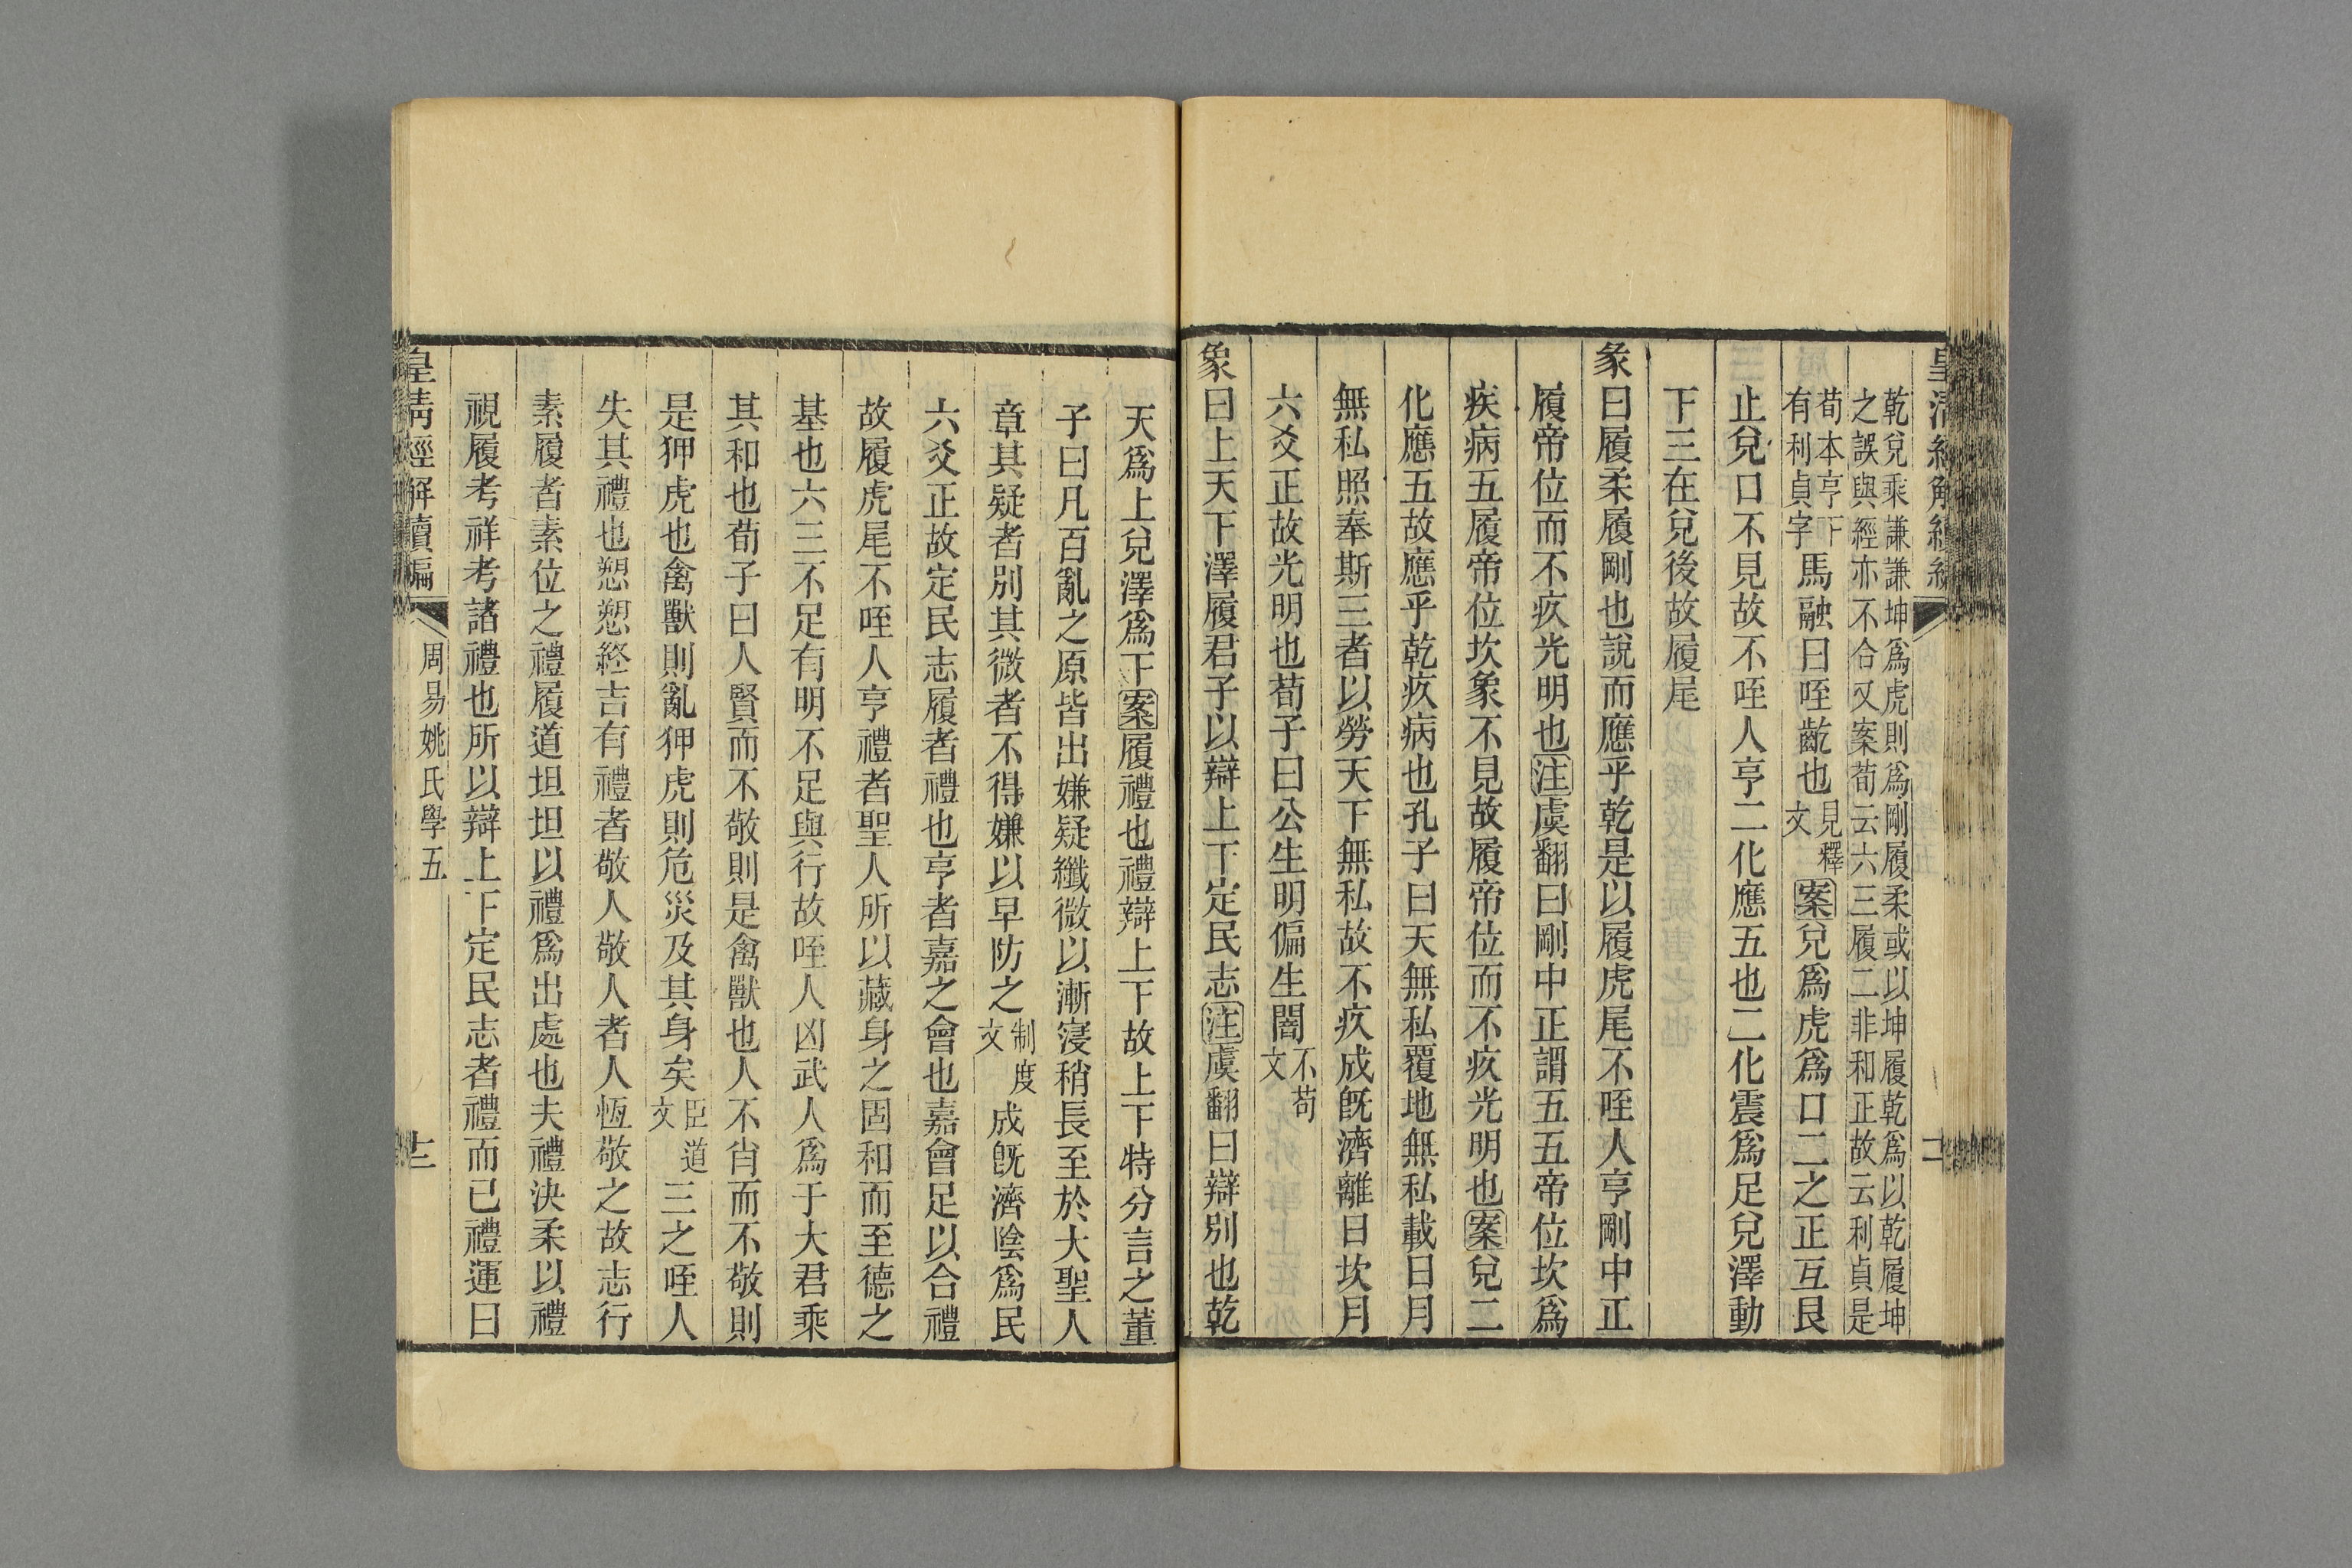 乾兌乘謙謙坤為虎則為剛履柔或以坤履乾為以乾履坤
之誤與經亦不合又案荀云六三履二非和正故云利貞是
荀本亨下有利貞字馬融曰咥齕也見釋文案兌爲虎爲口二之正互艮
止兌口不見故不咥人亨二化應五也二化震爲足兌澤動
下三在兌後故履尾
彖曰履柔履剛也說而應乎乾是以履虎尾不咥人亨剛中正
履帝位而不疚光明也注虞翻曰剛中正謂五五帝位坎爲
疾病五履帝位坎象不見故履帝位而不疚光明也案兌二
化應五故應乎乾疚病也孔子曰天無私覆地無私載日月
無私照奉斯三者以勞天下無私故不疚成既濟離日坎月
六爻正故光明也荀子曰公生明偏生闇不苟文
象曰上天下澤履君子以辯上下定民志注虞翻曰辯別也乾
天爲上兌澤爲下案履禮也禮辯上下故上下特分言之董
子曰凡百亂之原皆出嫌疑纖微以漸寖稍長至於大聖人
章其疑者別其微者不得嫌以早防之制度文成既濟陰爲民
六爻正故定民志履者禮也亨者嘉之會也嘉會足以合禮
故履虎尾不咥人亨禮者聖人所以藏身之固和而至德之
基也六三不足有明不足與行故咥人凶武人爲于大君乘
其和也荀子曰人賢而不敬則是禽獸也人不肖而不敬則
是狎虎也禽獸則亂狎虎則危災及其身矣臣道文三之咥人
失其禮也愬愬終吉有禮者敬人敬人者人恆敬之故志行
素履者素位之禮履道坦坦以禮爲出處也夫禮決柔以禮
視履考祥考諸禮也所以辯上下定民志者禮而已禮運曰
皇清經解續編 周易姚氏學五